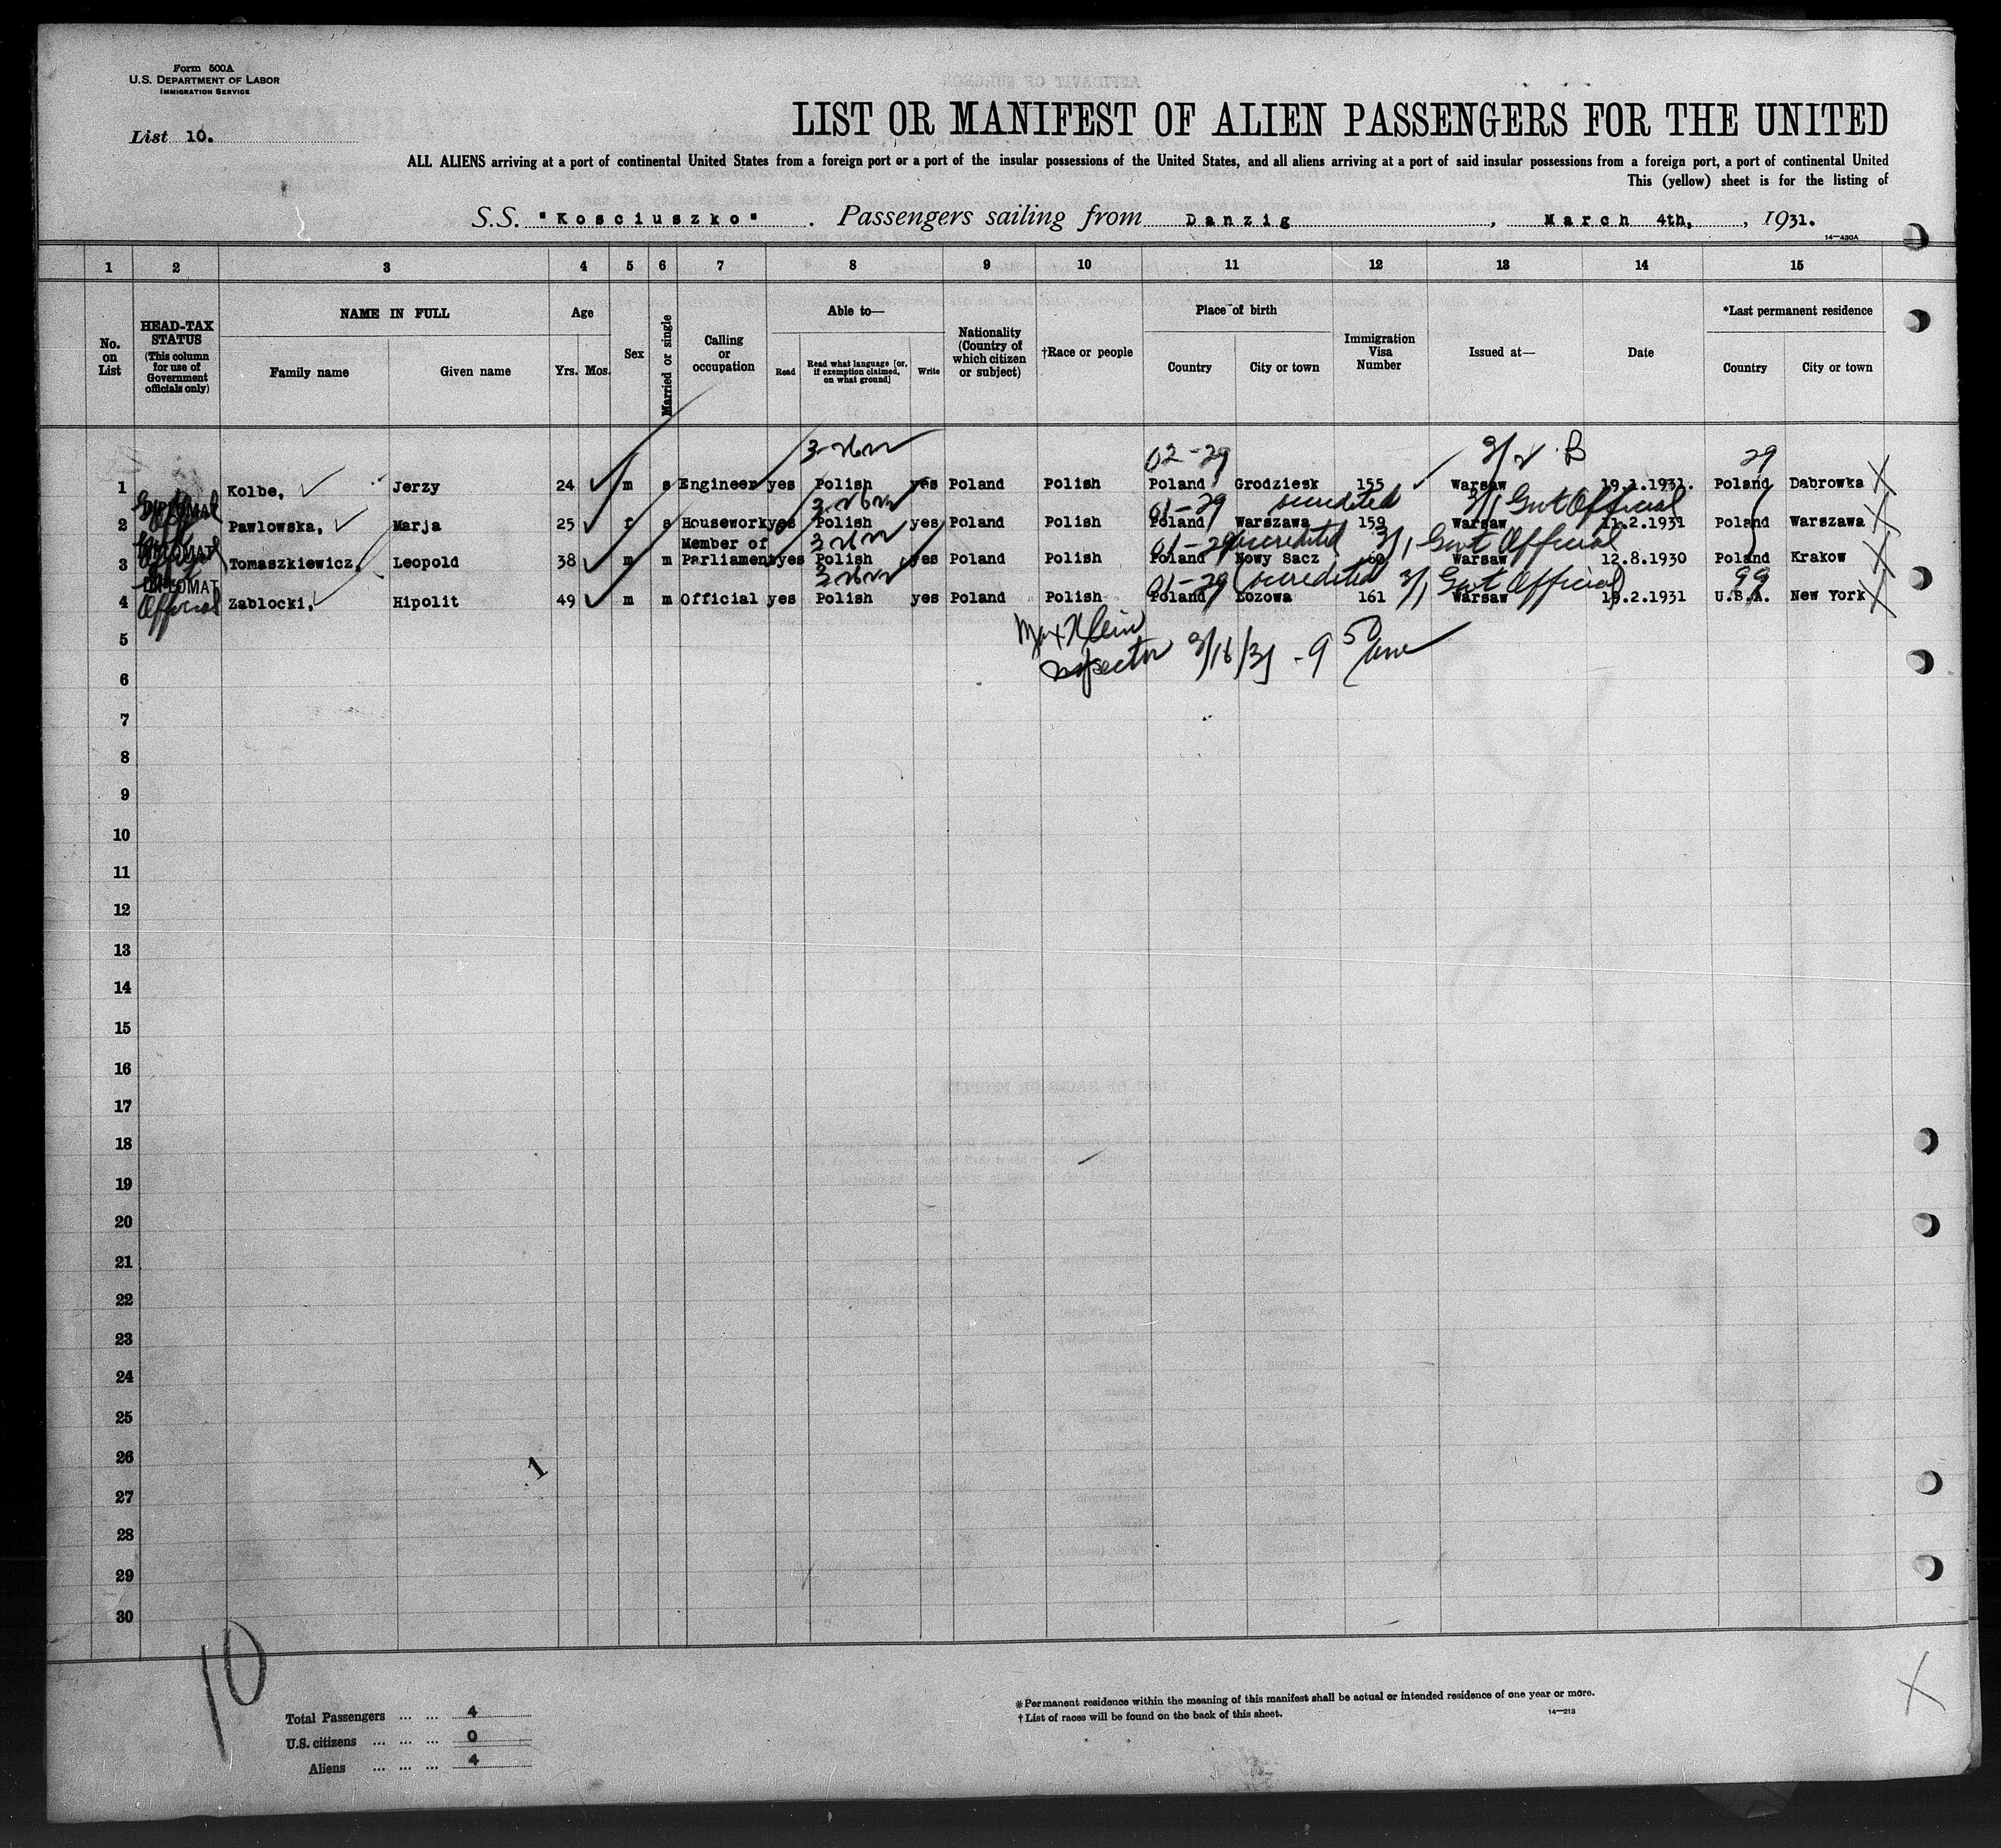 Form 500A
U.S. DEPARTMENT OF LABOR
IMMIGRATION SERVICE
List 10.
LIST OR MANIFEST OF ALIEN PASSENGERS FOR THE UNITED
ALL ALIENS arriving at a port of continental United States from a foreign port or a port of the insular possessions of the United States, and all aliens arriving at a port of said insular possessions from a foreign port, a port of continental United
This (yellow) sheet is for the listing of
S.S. "Kosciuszko". Passengers sailing from Danzig, March 4th, , 1931.
14—430A
1 2 3 4 5 6 7 8 9 10 11 12 13 14 15
No. on List
HEAD-TAX STATUS (This column for use of Government officials only)
NAME IN FULL
Family name Given name
Age
Yrs. Mos.
Sex
Married or single
Calling or occupation
Able to—
Read Read what language [or, if exemption claimed, on what ground] Write
Nationality (Country of which citizen or subject)
†Race or people
Place of birth
Country City or town
Immigration Visa Number
Issued at—
Date
*Last permanent residence
Country City or town
02-29 29
1 Kolbe, Jerzy 24 m s Engineer yes Polish yes Poland Polish Poland Grodziesk 155 Warsaw 19.1.1931. Poland Dabrowka
DIPLOMAT 01-29 accredited 3/1 Govt Official
2 Pawlowska, Marja 25 f s Housework yes Polish yes Poland Polish Poland Warszawa 159 Warsaw 11.2.1931 Poland Warszawa
DIPLOMAT Member of 01-29 accredited 3/1 Govt Official
3 Tomaszkiewicz, Leopold 38 m m Parliament yes Polish yes Poland Polish Poland Nowy Sacz 60 Warsaw 12.8.1930 Poland Krakow
DIPLOMAT 01-29 (accredited 3/1 Govt Official) 99
4 Official Zablocki, Hipolit 49 m m Official yes Polish yes Poland Polish Poland Lozowa 161 Warsaw 19.2.1931 U.S.A. New York
Max Klein
Inspector 3/16/31 - 9 50 am
5
6
7
8
9
10
11
12
13
14
15
16
17
18
19
20
21
22
23
24
25
26
1
27
28
29
30
10
Total Passengers ... ... 4
U.S. citizens ... ... ... 0
Aliens ... ... ... 4
*Permanent residence within the meaning of this manifest shall be actual or intended residence of one year or more.
†List of races will be found on the back of this sheet.
14—213